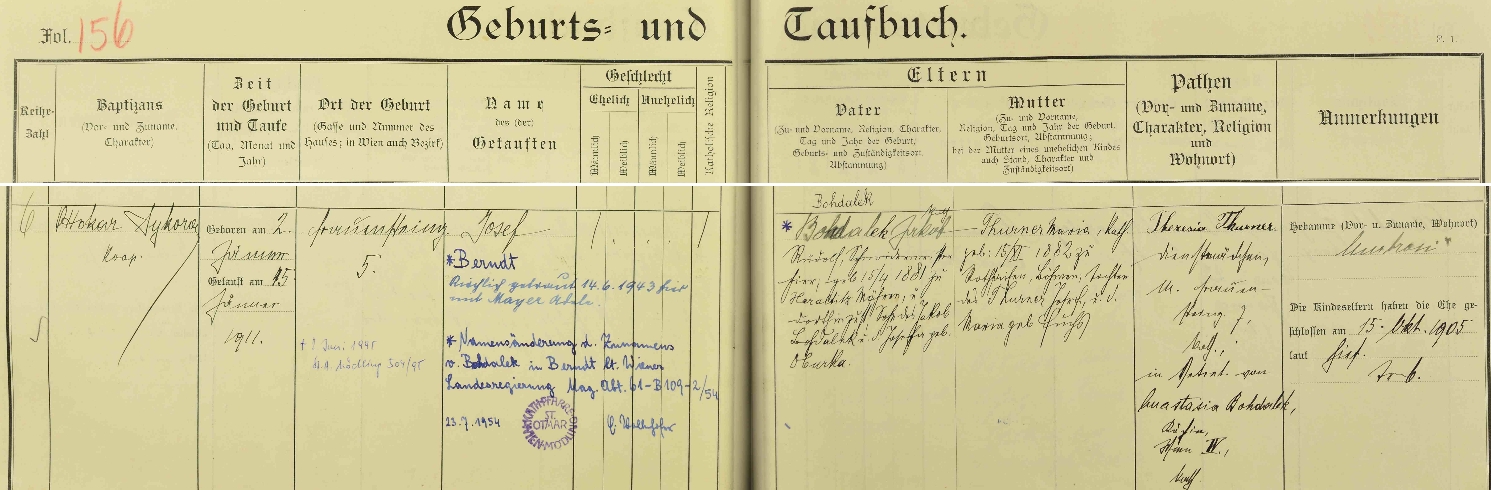 Fol. 156
Geburts- und Taufbuch.
Reihe-
Zahl
Baptizans
(Vor- und Zuname,
Charakter)
Zeit
der Geburt
und Taufe
(Tag, Monat und
Jahr)
Ort der Geburt
(Gasse und Nummer des
Hauses; in Wien auch Bezirk)
Name
des (der)
Getauften
Geschlecht
Ehelich
Unehelich
Männlich
Weiblich
Männlich
Weiblich
Katholische Religion
Eltern
Vater
(Zu- und Vorname, Religion, Charakter,
Tag und Jahr der Geburt,
Geburts- und Zuständigkeitsort,
Abstammung)
Mutter
(Zu- und Vorname,
Religion, Tag und Jahr der Geburt,
Geburtsort, Abstammung;
bei der Mutter eines unehelichen Kindes
auch Stand, Charakter und
Zuständigkeitsort)
Pathen
(Vor- und Zuname,
Charakter, Religion
und
Wohnort)
Anmerkungen
6
Ottokar Sykora
Koop.
Geboren am 2.
Jänner
Getauft am 15
Jänner
1911.
5.
† 2 Juni 1995
Mödling 304/95
Josef
* Berndt
Kirchlich getraut 14.6.1943 hier
mit Mayer Adele.
* Namensänderung d. Zunamens
v. Bohdalek in Berndt lt. Wiener
Landesregierung Mag. Abt. 61-B 109-2/54
23.7.1954
ST.
OTMAR
Bohdalek
* Bohdalek Jakob
Rudolf
hier, geb. 15/4 1881 zu
Mähren, u.
dorthin zust. Sohn des Jakob
Bohdalek u. d. Josefa geb.
Oburka.
Thurner Maria, kath.
geb. 15/XI 1882 zu
Böhmen, Tochter
des Thurner Josef, u. d.
Maria geb. Fuchs
Theresia Thurner
Dienstmädchen,
M. Frauen-
7,
kath.,
in Vertret. von
Anastasia Bohdalek,
Köchin,
Wien IV.,
kath.
Hebamme (Vor- u. Zuname, Wohnort)
Die Kindeseltern haben die Ehe ge-
schlossen am 15. Okt. 1905
laut hies.
Trb.